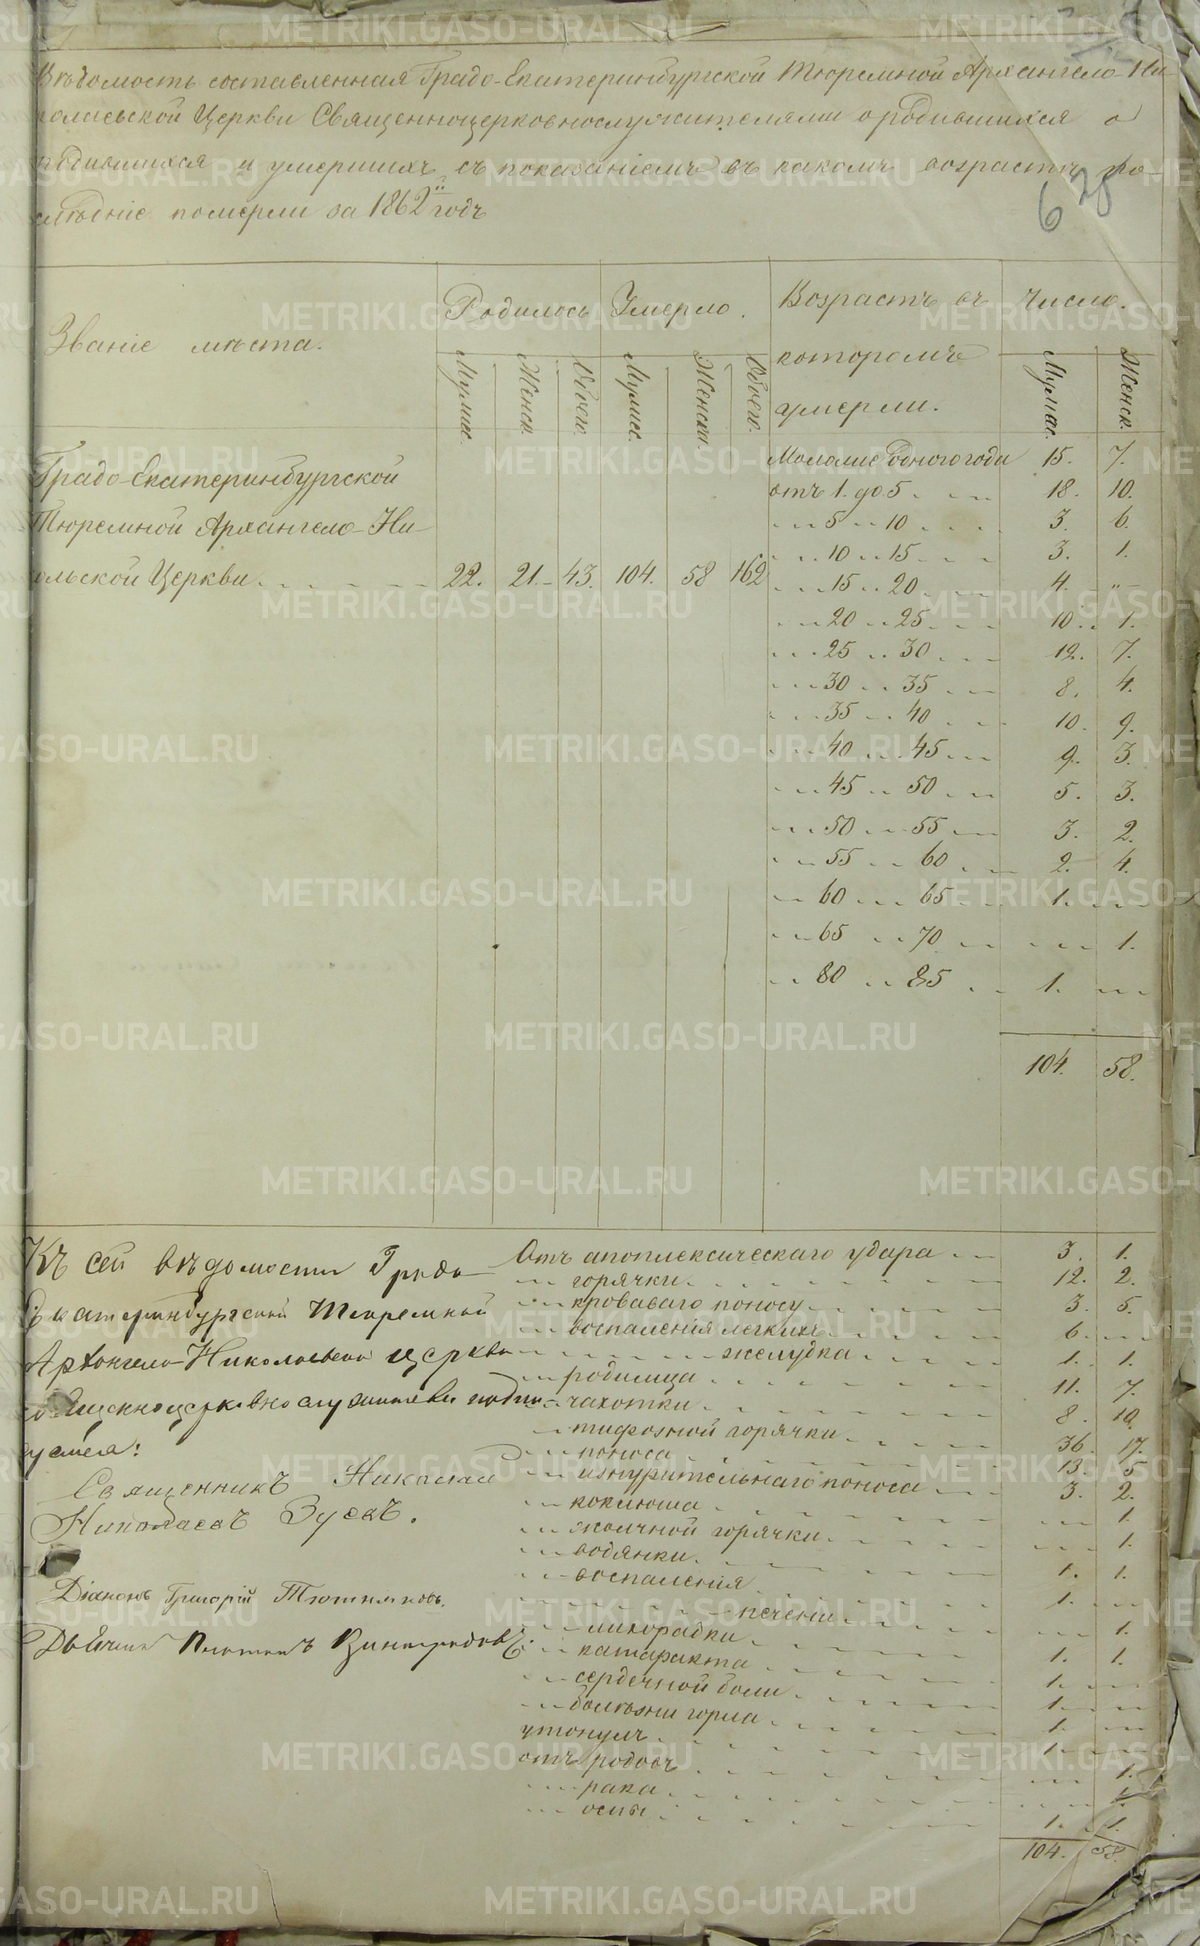 Вѣдомость составленная Градо-Екатеринбургской Тюремной Архангело-Ни-
колаевской Церкви Священноцерковнослужителями о родившихся о
родившихся и умершихъ съ показаніемъ въ какомъ возрастѣ по-
слѣдніе померли за 1862й годъ
628
Званіе мѣста.
Родилось
Умерло.
Возрастъ въ
которомъ
умерли.
Число.
Мужск.
Женск.
Обоего.
Мужск.
Женска.
Обоего.
Мужск.
Женск.
Градо-Екатеринбургской
Тюремной Архангело-Ни-
кольской Церкви 22. 21. 43. 104. 58 162
Моложе одного года 15. 7.
отъ 1. до 5 18. 10.
5 10 3. 6.
10 15 3. 1.
15 20 4. "
20 25 10. 1.
25 30 12. 7.
30 35 8. 4.
35 40 10. 9.
40 45 9. 3.
45 50 5. 3.
50 55 3. 2.
55 60 2. 4.
60 65 1.
65 70 1.
80 85 1.
104. 58.
Къ сей вѣдомости Градо-
Екатеринбургской Тюремной
Архангело-Николаевской церкви
священноцерковнослужители подпи-
суемся:
Священникъ Николай
Николаевъ Зуевъ.
Діаконъ Григорій
Дьячекъ Платонъ Виноградовъ.
Отъ апоплексическаго удара 3. 1.
горячки 12. 2.
кроваваго поносу 3. 5.
воспаленія легкихъ 6.
желудка 1. 1.
родимца 11. 7.
чахотки 8. 10.
тифозной горячки 36. 17.
поноса 13. 5
изнурительнаго поноса 3. 2.
коклюша 1.
желчной горячки 1.
водянки 1. 1.
воспаленія 1.
печени 1.
лихорадки 1. 1.
катаракта 1.
сердечной боли 1.
болѣзни горла 1.
утонулъ 1.
отъ родовъ 1.
рака 1.
оспы 1. 1.
104. 58.
METRIKI.GASO-URAL.RU